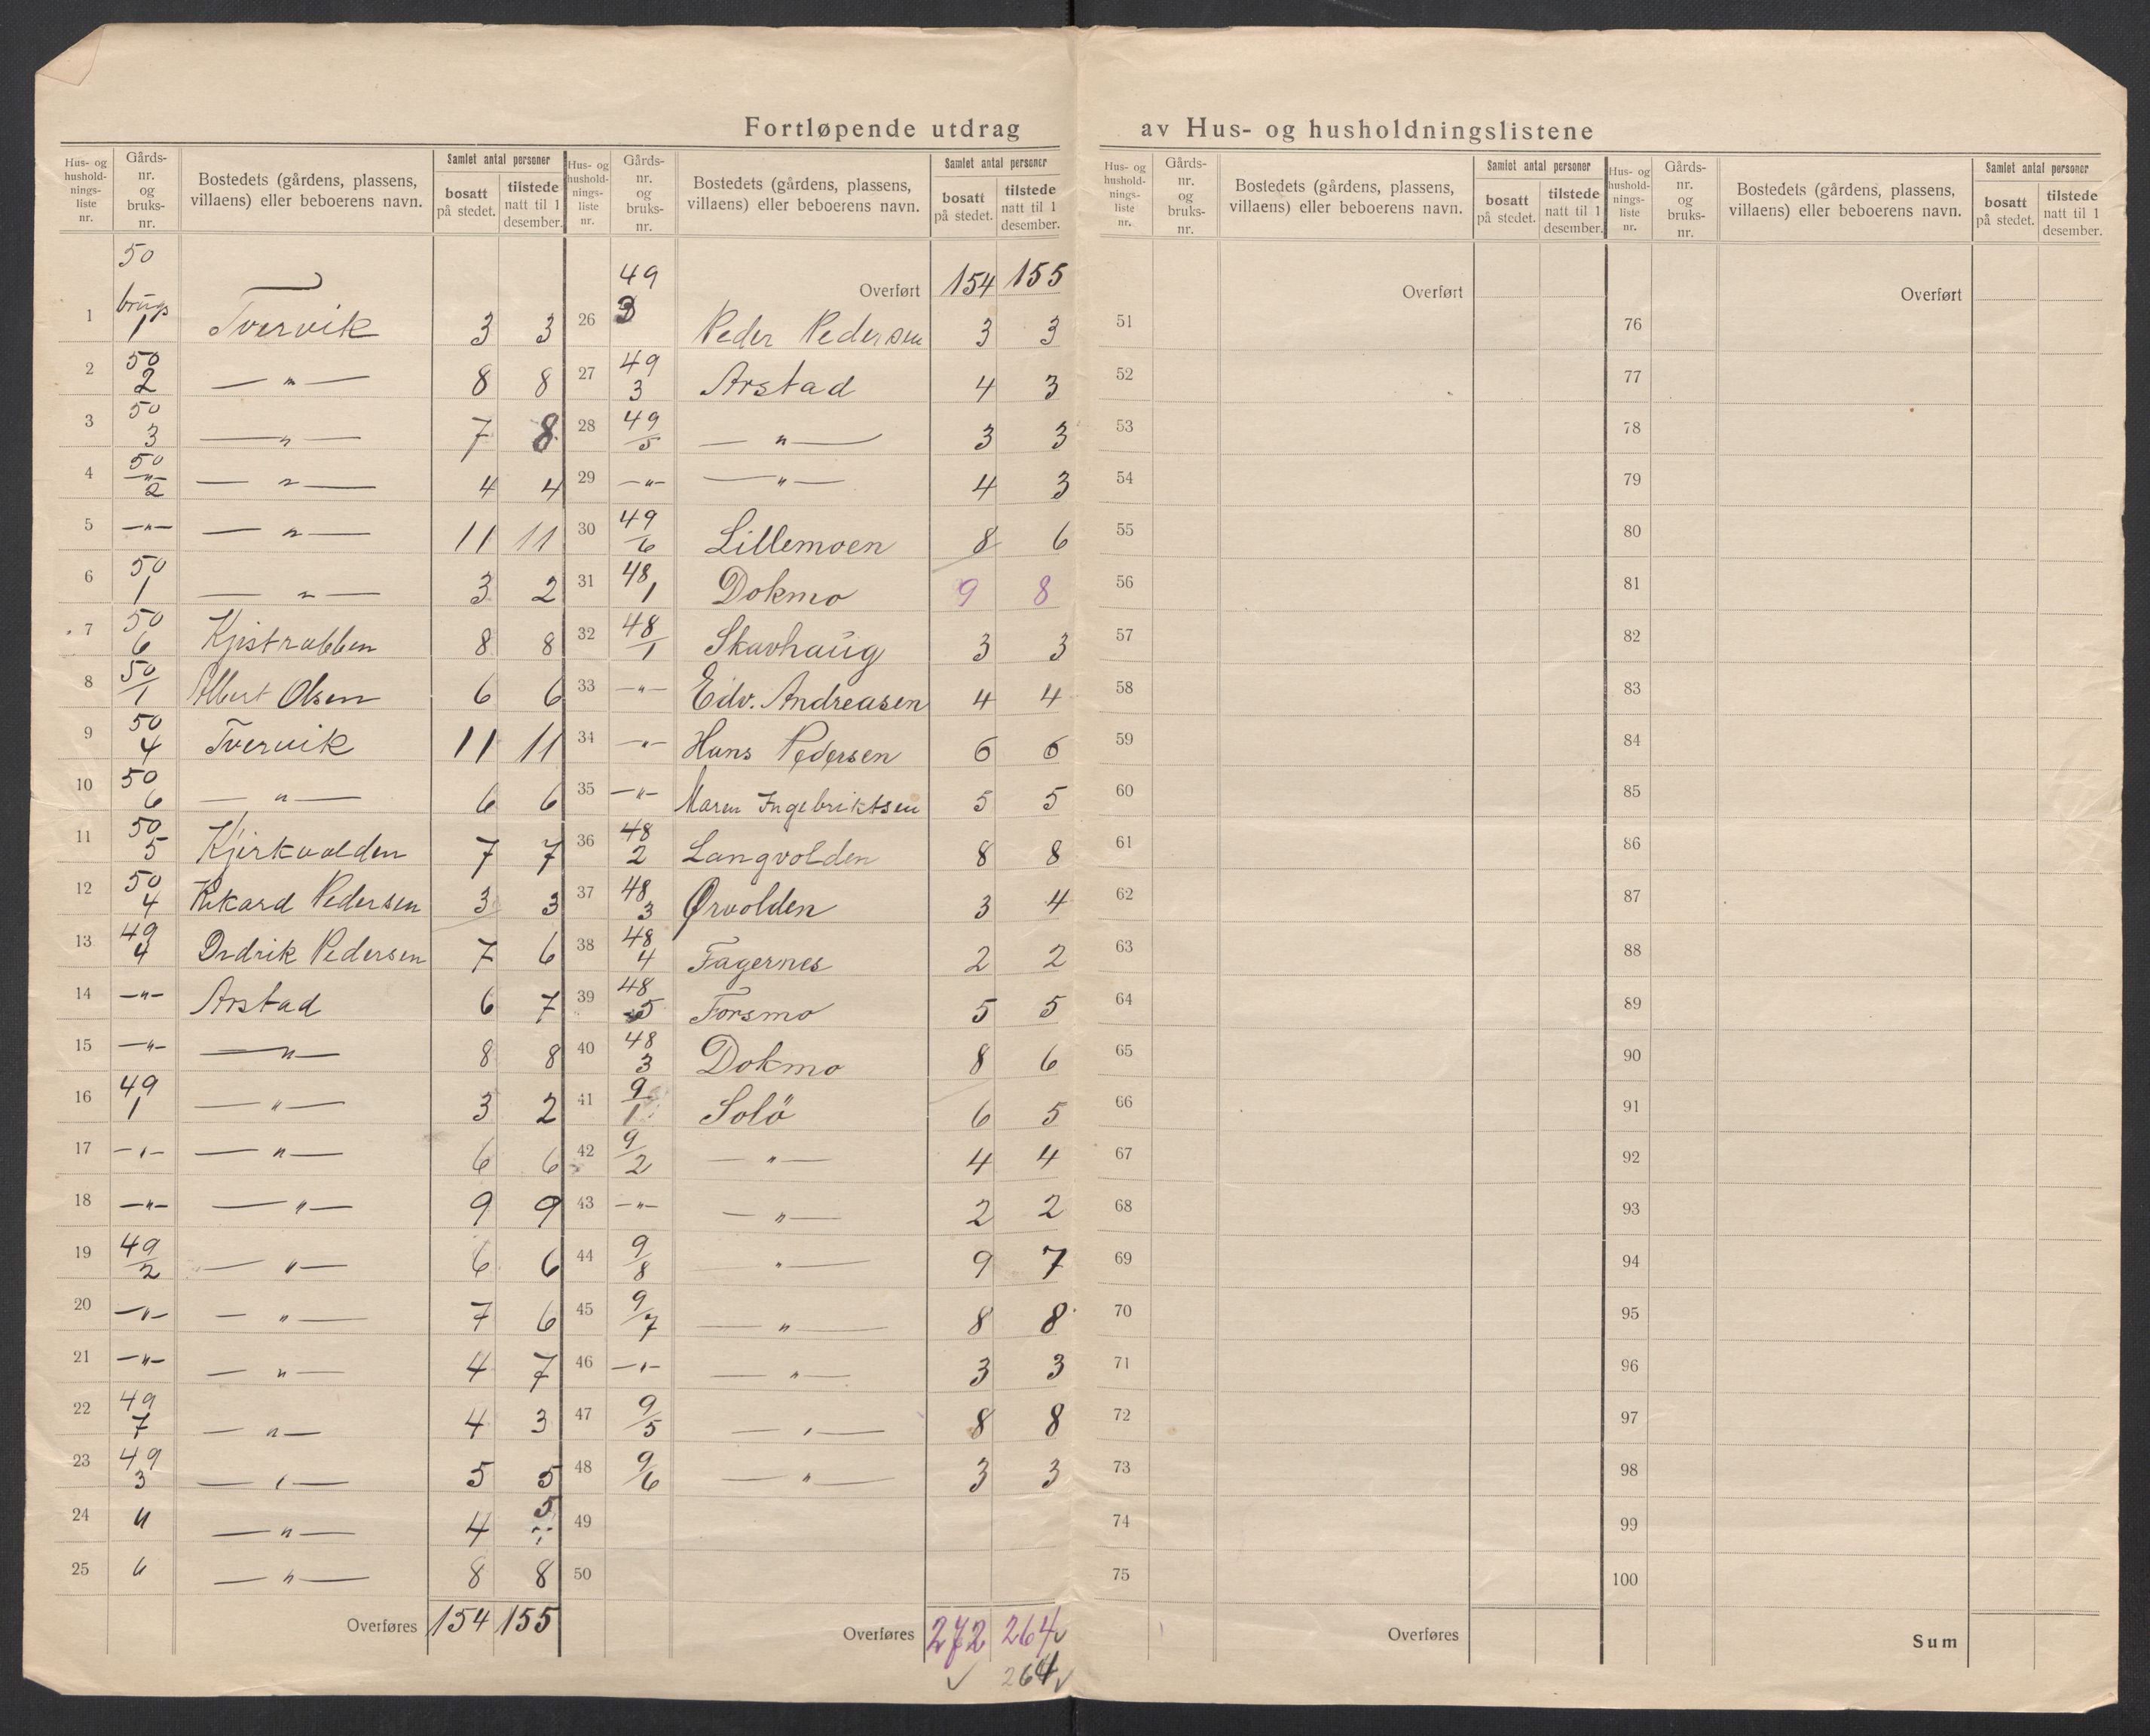 Fortløpende utdrag av Hus- og husholdningslistene
Hus- og hushold-nings-liste nr. | Gårds-nr. og bruks-nr. | Bostedets (gårdens, plassens, villaens) eller beboerens navn. | Samlet antal personer | bosatt på stedet. | tilstede natt til 1 desember.
50
1 brugs 1 Tvervik 3 3
2 50 2 — " — 8 8
3 50 3 — " — 7 8
4 50 -"- 2 — " — 4 4
5 -"- — " — 11 11
6 50 1 — " — 3 2
7 50 6 Kjistrabben 8 8
8 50/1 Albert Olsen 6 6
9 50 4 Tvervik 11 11
10 50 6 — " — 6 6
11 50 5 Kjerkvolden 7 7
12 50 4 Rikard Pedersen 3 3
13 49 4 Dedrik Pedersen 7 6
14 -"- Arstad 6 7
15 -"- — " — 8 8
16 49 1 — " — 3 2
17 -"- — " — 6 6
18 -"- — " — 9 9
19 49/2 — " — 6 6
20 -"- — " — 7 6
21 -"- — " — 4 7
22 49 7 — " — 4 3
23 49 3 — " — 5 5
24 " — " — 4 5
25 6 — " — 8 8
Overføres 154 155
Hus- og hushold-nings-liste nr. | Gårds-nr. og bruks-nr. | Bostedets (gårdens, plassens, villaens) eller beboerens navn. | Samlet antal personer | bosatt på stedet. | tilstede natt til 1 desember.
Overført 154 155
26 49 3 Peder Pedersen 3 3
27 49 3 Arstad 4 3
28 49/5 — " — 3 3
29 -"- — " — 4 3
30 49/6 Lillemoen 8 6
31 48 1 Dokmo 9 8
32 48/1 Skavhaug 3 3
33 -"- Edv. Andreasen 4 4
34 -"- Hans Pedersen 6 6
35 -"- Maren Ingebriktsen 5 5
36 48 2 Langvolden 8 8
37 48 3 Ørvolden 3 4
38 48 4 Fagernes 2 2
39 48 5 Forsmo 5 5
40 48 3 Dokmo 8 6
41 9/1 Solö 6 5
42 9/2 — " — 4 4
43 -"- — " — 2 2
44 9/8 — " — 9 7
45 9/7 — " — 8 8
46 -"- — " — 3 3
47 9/5 — " — 8 8
48 9/6 — " — 3 3
49
50
Overføres 272 264 ✓
✓ 264 ✓
Hus- og hushold-nings-liste nr. | Gårds-nr. og bruks-nr. | Bostedets (gårdens, plassens, villaens) eller beboerens navn. | Samlet antal personer | bosatt på stedet. | tilstede natt til 1 desember.
Overført
51
52
53
54
55
56
57
58
59
60
61
62
63
64
65
66
67
68
69
70
71
72
73
74
75
Overføres
Hus- og hushold-nings-liste nr. | Gårds-nr. og bruks-nr. | Bostedets (gårdens, plassens, villaens) eller beboerens navn. | Samlet antal personer | bosatt på stedet. | tilstede natt til 1 desember.
Overført
76
77
78
79
80
81
82
83
84
85
86
87
88
89
90
91
92
93
94
95
96
97
98
99
100
Sum